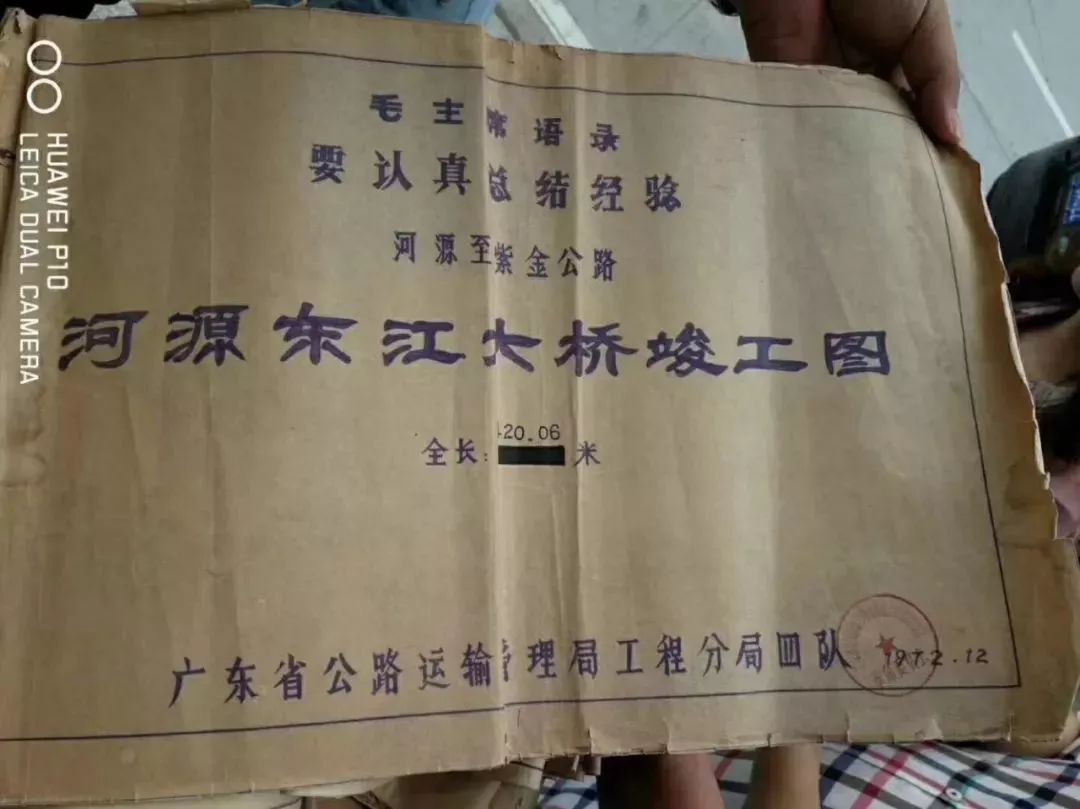 毛主席语录
要认真总结经验
河源至紫金公路
河源东江大桥竣工图
420.06
全长: 米
广东省公路运输管理局工程分局四队
1972.12
HUAWEI P10
LEICA DUAL CAMERA